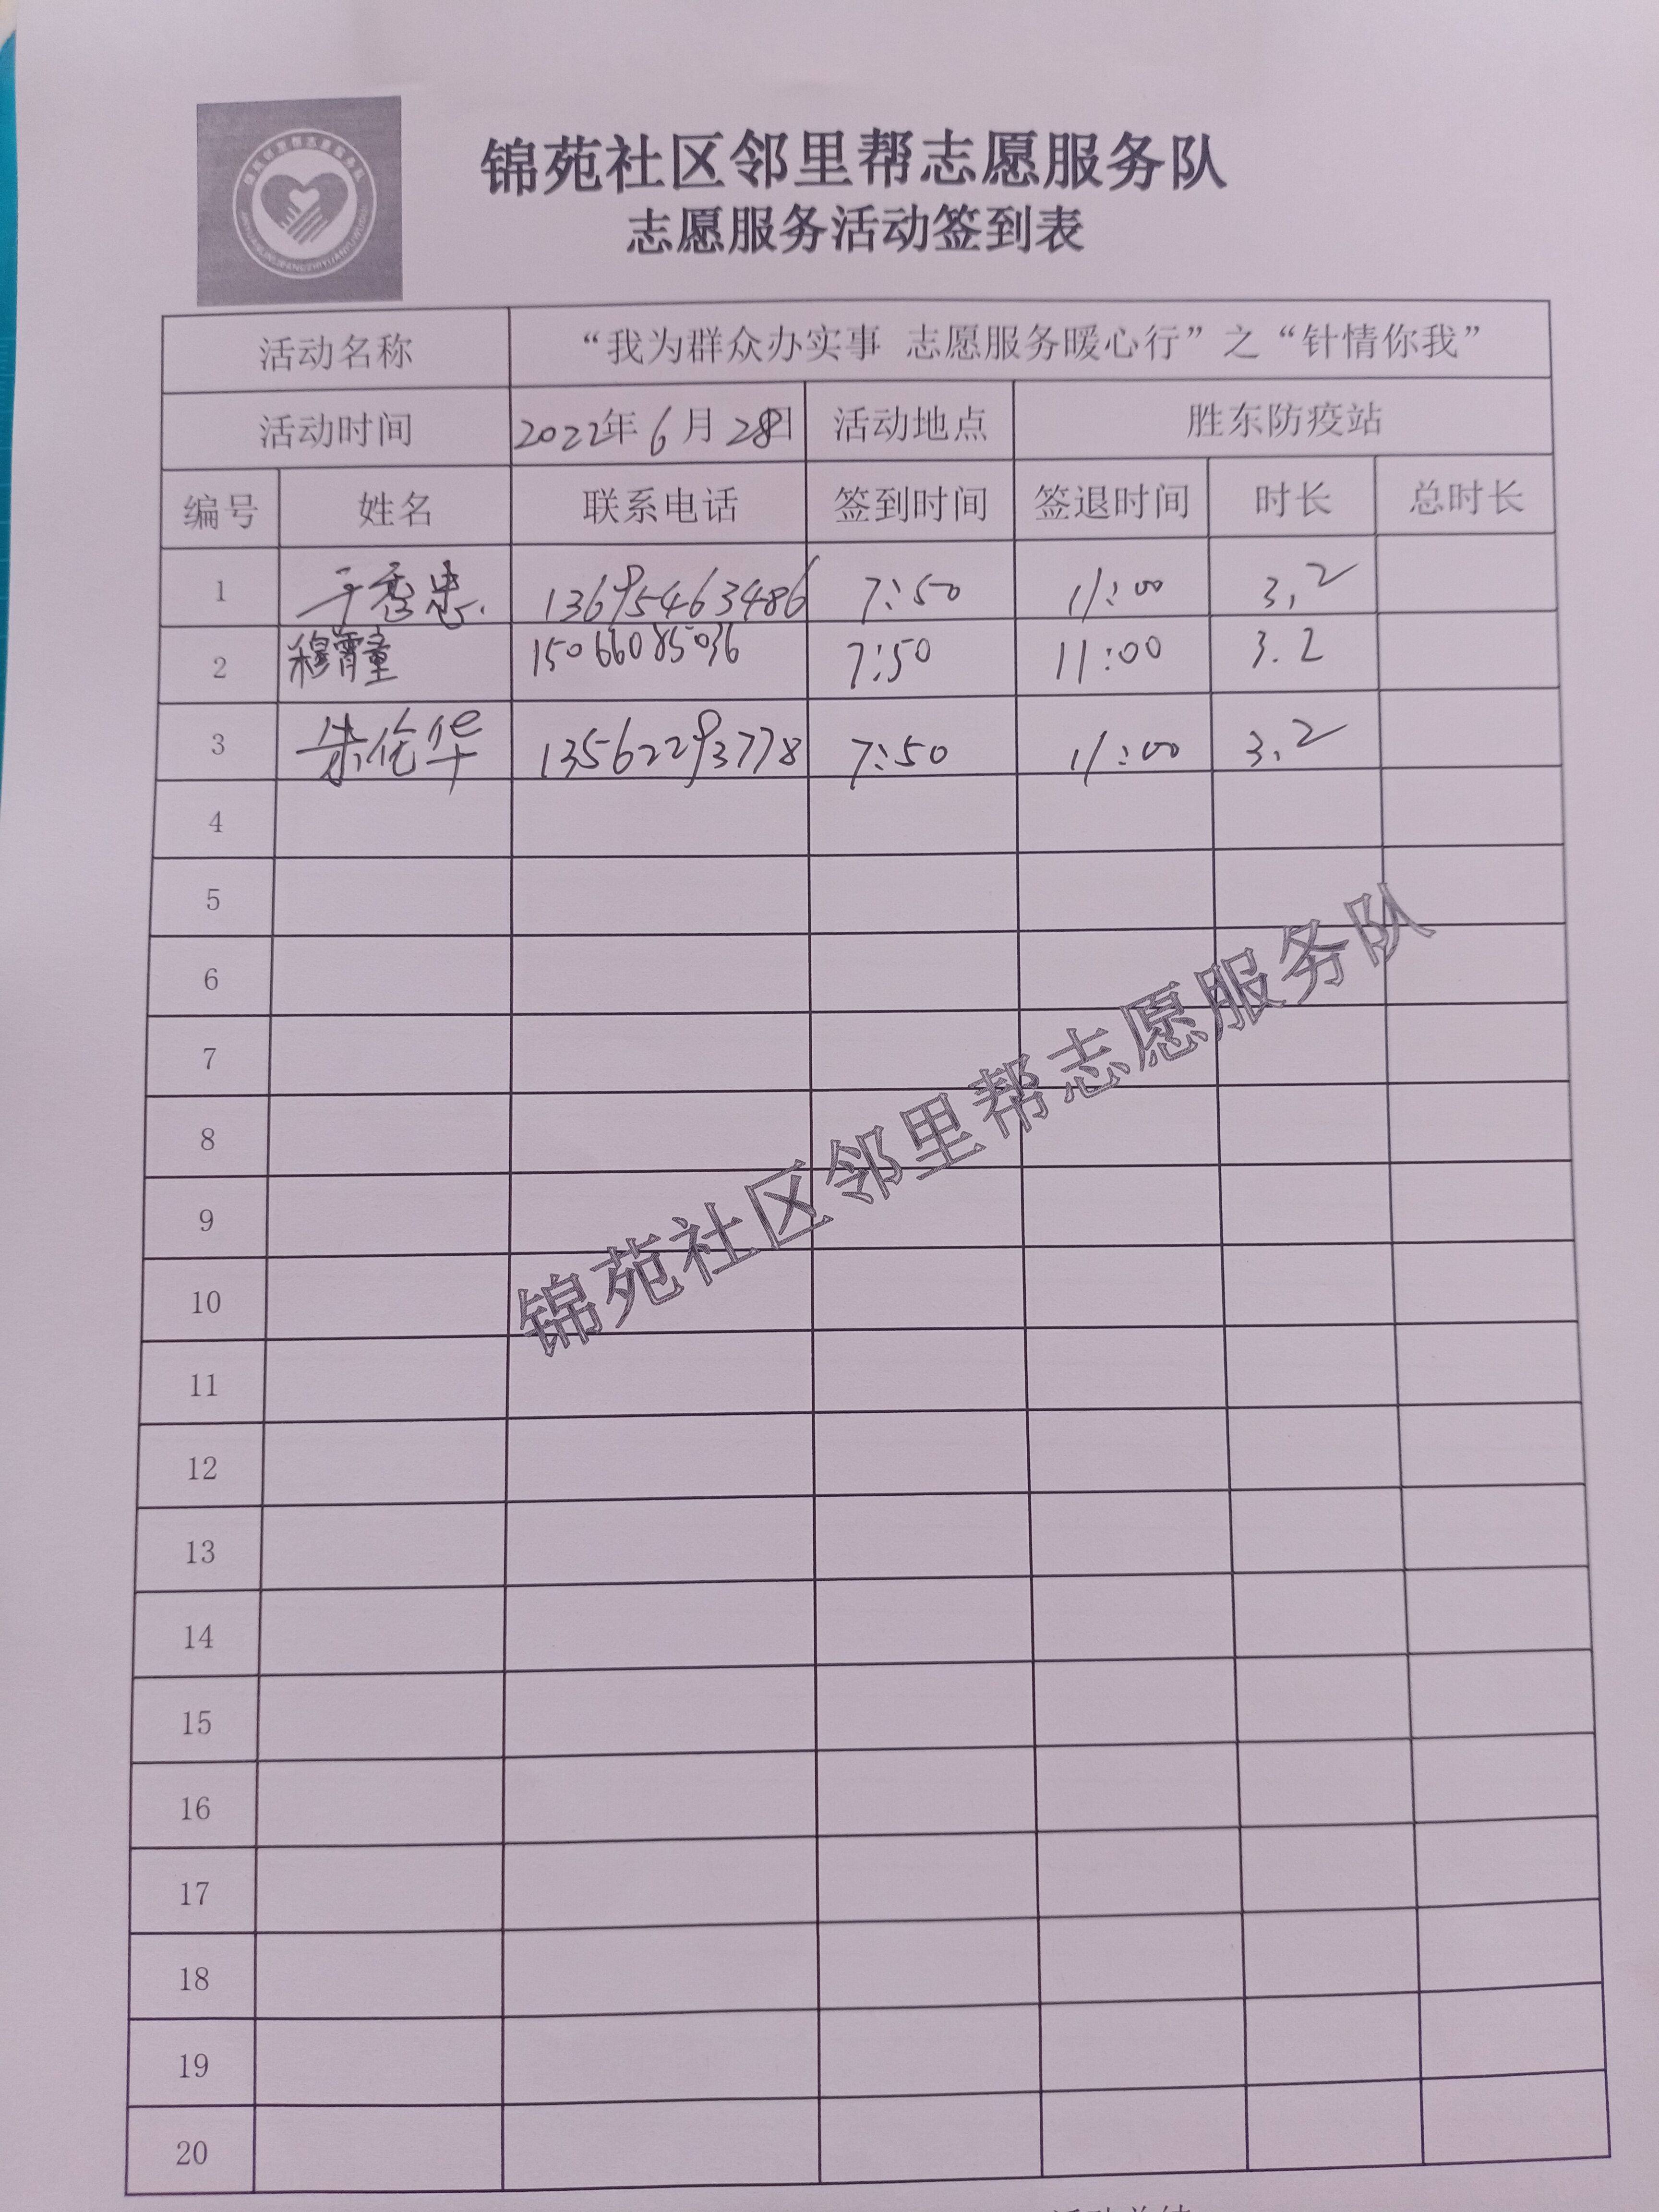 锦苑社区邻里帮志愿服务队
志愿服务活动签到表
活动名称 “我为群众办实事 志愿服务暖心行”之“针情你我”
活动时间 2022年6月28日 活动地点 胜东防疫站
编号 姓名 联系电话 签到时间 签退时间 时长 总时长
1 13695463486 7:50 11:00 3.2
2 穆霄童 15066085036 7:50 11:00 3.2
3 朱伦华 13562293778 7:50 11:00 3.2
4
5
6
7
8
9
10
11
12
13
14
15
16
17
18
19
20
锦苑社区邻里帮志愿服务队